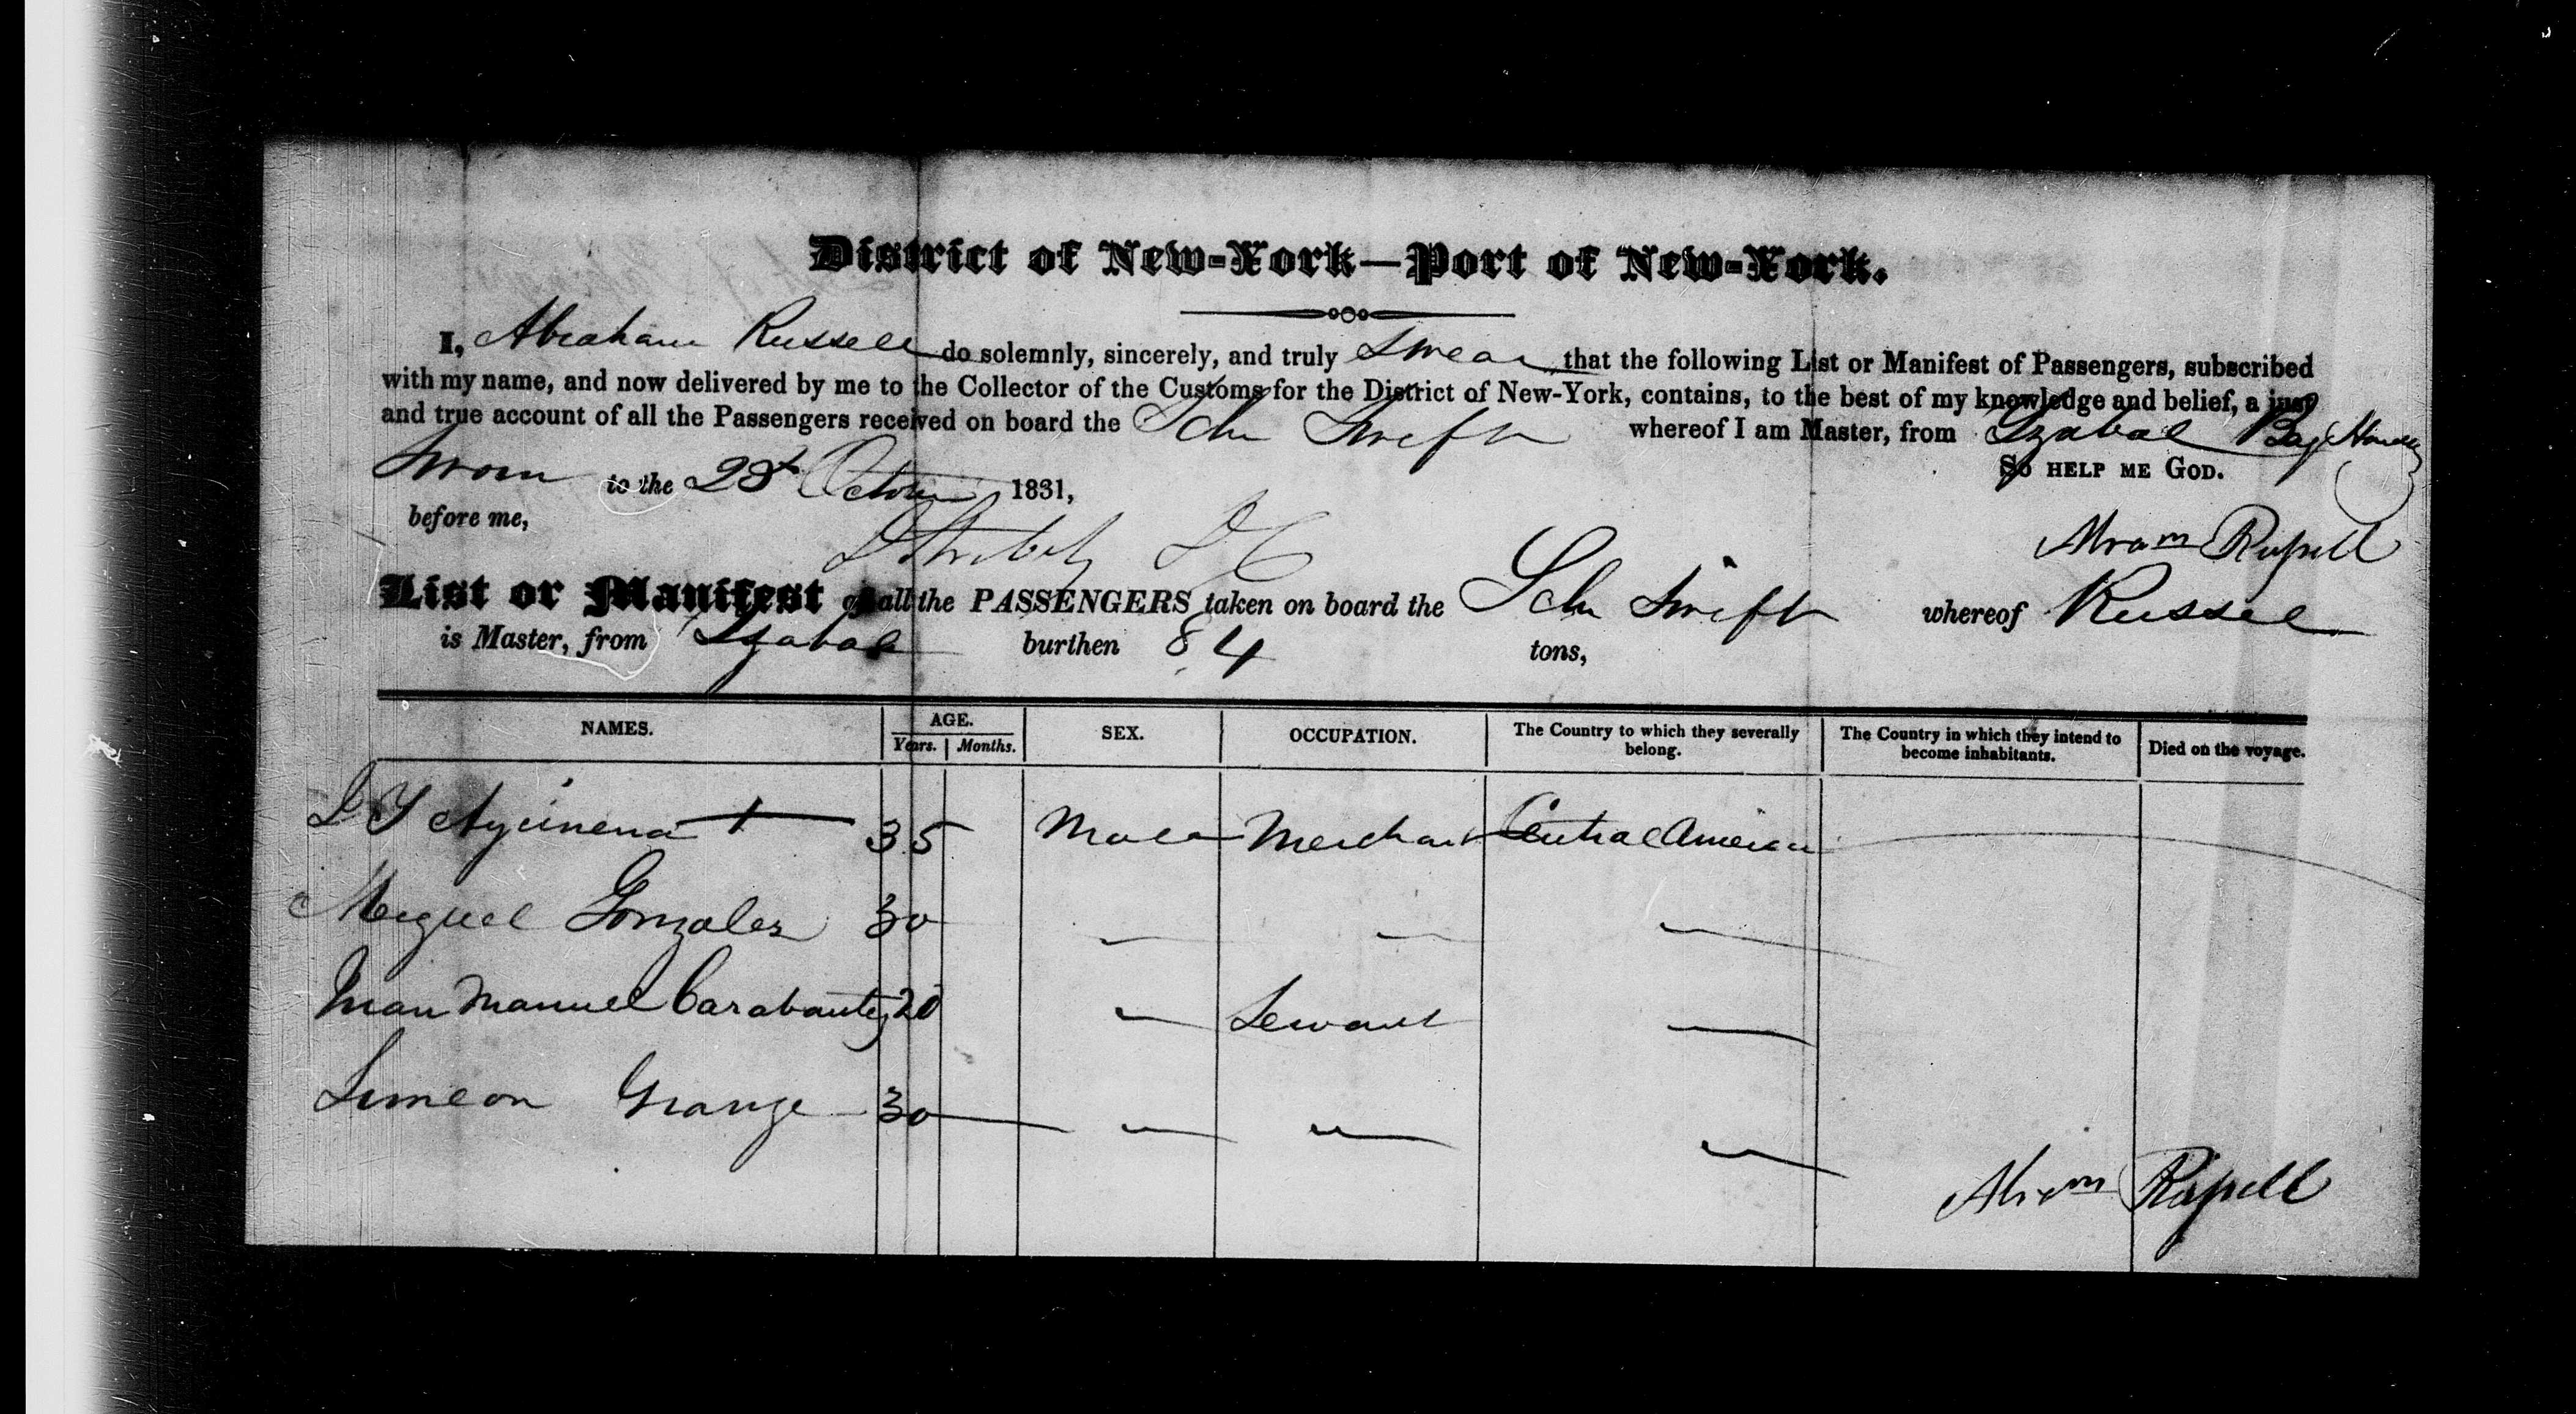 District of New-York—Port of New-York.
I, Abraham Russell do solemnly, sincerely, and truly Swear that the following List or Manifest of Passengers, subscribed
with my name, and now delivered by me to the Collector of the Customs for the District of New-York, contains, to the best of my knowledge and belief, a just
and true account of all the Passengers received on board the Schr Swift whereof I am Master, from Izabal Bay
Sworn to the 28th October 1831,
So help me God.
before me,
Abram Russell
List or Manifest of all the PASSENGERS taken on board the Schr Swift whereof Russell
is Master, from Izabal burthen 84 tons,
NAMES. AGE. Years. Months. SEX. OCCUPATION. The Country to which they severally belong. The Country in which they intend to become inhabitants. Died on the voyage.
Y Aycinena 35 Male Merchant Central America
Miguel Gonzales 30 — — —
Juan Manuel Carabantes 20 — Servant —
Simeon Grange 30 — — —
Abram Russell